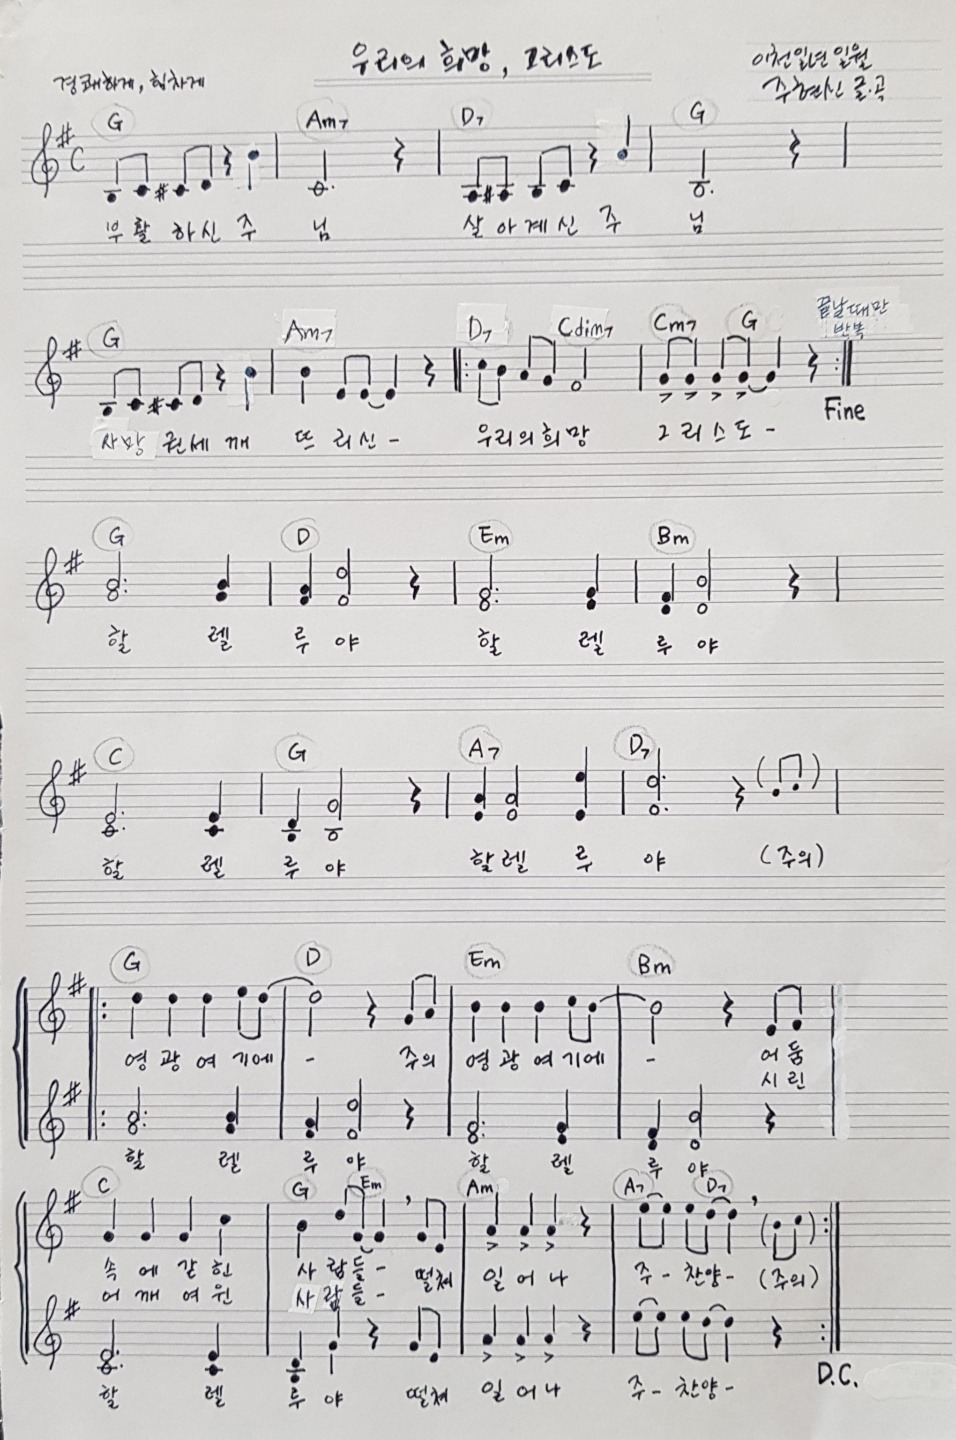 우리의 희망, 그리스도
경쾌하게, 힘차게
이천일년 일월
주현신 글·곡
G Am7 D7 G
부 활 하 신 주 님 살 아 계 신 주 님
G Am7 D7 Cdim7 Cm7 G 끝날때만
반복
Fine
사 망 권 세 깨 뜨 리 신 - 우 리 의 희 망 그 리 스 도 -
G D Em Bm
할 렐 루 야 할 렐 루 야
C G A7 D7
할 렐 루 야 할 렐 루 야 (주의)
G D Em Bm
영 광 여 기 에 - 주의 영 광 여 기 에 - 어 둠
시 린
할 렐 루 야 할 렐 루 야
C G Em Am A7 D7
속 에 갇 힌 사 람 들 - 떨쳐 일 어 나 주 - 찬양 - (주의)
어 깨 여 윈 사 람 들 -
할 렐 루 야 떨쳐 일 어 나 주 - 찬양 -
D.C.